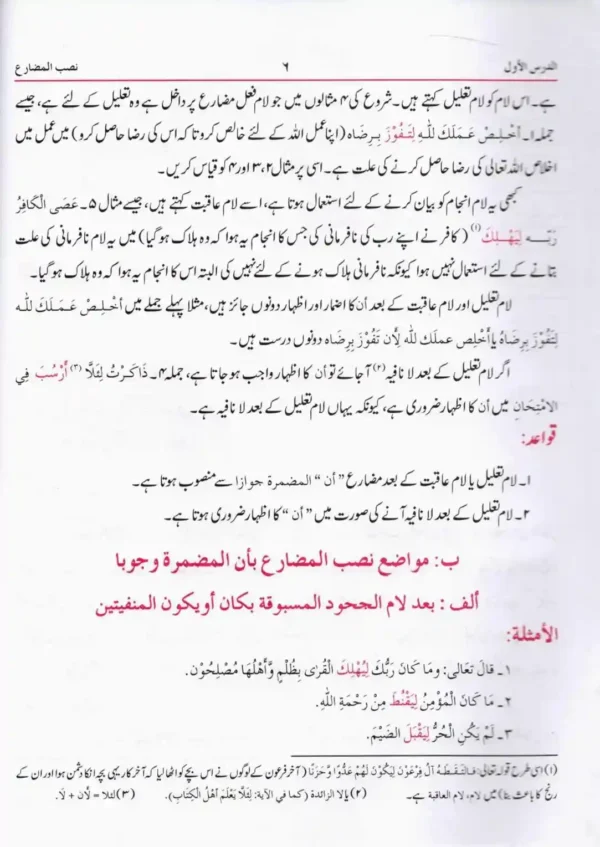 الدرس الأول ٦ نصب المضارع
ہے۔ اس لام کو لام تعلیل کہتے ہیں۔ شروع کی ۴ مثالوں میں جو لام فعل مضارع پر داخل ہے وہ تعلیل کے لئے ہے، جیسے
جملہ ۱۔ أَخْلِصْ عَمَلَكَ لِلّٰهِ لِتَفُوْزَ بِرِضَاه (اپنا عمل اللہ کے لئے خالص کرو تاکہ اس کی رضا حاصل کرو) میں عمل میں
اخلاص اللہ تعالی کی رضا حاصل کرنے کی علت ہے۔ اسی پر مثال ۲، ۳ اور ۴ کو قیاس کریں۔
کبھی یہ لام انجام کو بیان کرنے کے لئے استعمال ہوتا ہے، اسے لام عاقبت کہتے ہیں، جیسے مثال ۵۔ عَصَى الْكَافِرُ
رَبَّــه لِيَهْلِكَ (۱) (کافر نے اپنے رب کی نافرمانی کی جس کا انجام یہ ہوا کہ وہ ہلاک ہو گیا) میں یہ لام نافرمانی کی علت
بتانے کے لئے استعمال نہیں ہوا کیونکہ نافرمانی ہلاک ہونے کے لئے نہیں کی البتہ اس کا انجام یہ ہوا کہ وہ ہلاک ہو گیا۔
لام تعلیل اور لام عاقبت کے بعد أن کا اضمار اور اظہار دونوں جائز ہیں، مثلا پہلے جملے میں أَخْلِصْ عَمَـلَكَ لِلّٰه
لِتَفُوْزَ بِرِضَاهُ یا أَخْلِص عملَك للّٰه لِأن تَفُوْزَ بِرِضَاه دونوں درست ہیں۔
اگر لام تعلیل کے بعد لا نافیہ (۲) آ جائے تو أن کا اظہار واجب ہو جاتا ہے، جملہ ۴۔ ذَاكَرْتُ لِئَلَّا (۳) أَرْسُبَ فِي
الامْتِحَانِ میں أن کا اظہار ضروری ہے، کیونکہ یہاں لام تعلیل کے بعد لا نافیہ ہے۔
قواعد:
۱۔ لام تعلیل یا لام عاقبت کے بعد مضارع ”أن“ المضمرة جوازا سے منصوب ہوتا ہے۔
۲۔ لام تعلیل کے بعد لا نافیہ آنے کی صورت میں ”أن“ کا اظہار ضروری ہوتا ہے۔
ب: مواضع نصب المضارع بأن المضمرة وجوبا
ألف: بعد لام الجحود المسبوقة بكان أو يكون المنفيتين
الأمثلة:
۱۔ قالَ تعَالى: وَمَا كَانَ رَبُّكَ لِيُهْلِكَ الْقُرٰى بِظُلْمٍ وَّأَهْلُهَا مُصْلِحُوْن.
۲۔ مَا كَانَ الْمُؤْمِنُ لِيَقْنُطَ مِنْ رَحْمَةِ اللّٰهِ.
۳۔ لَمْ يَكُنِ الْحُرُّ لِيَقْبَلَ الضَّيْمَ.
(۱) اسی طرح قولہ تعالی: فَالتَقَطَهُ آلُ فِرْعَوْنَ لِيَكُوْنَ لَهُمْ عَدُوًّا وَّحَزَنًا (آخر فرعون کے لوگوں نے اس بچے کو اٹھا لیا کہ آخر کار یہی بچہ ان کا دشمن ہوا اور ان کے
رنج کا باعث بنا) میں لام، لام العاقبة ہے۔ (۲) یا لا الزائدة (كما في الآية: لِئَلَّا يَعْلَمَ أَهْلُ الْكِتَابِ). (۳) لئلا = لِأن + لَا.